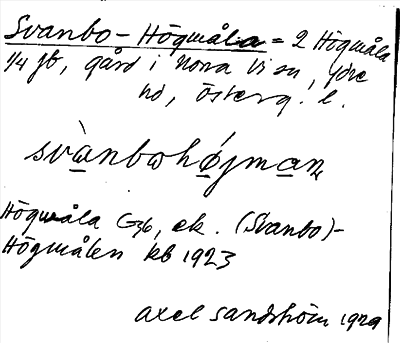 Svanbo-Högmåla = 2 Högmåla
1/4 ft, gård i Norra Vi sn, Ydre
hd, Österg. l.
svànbohǿjman
Högmåla G36, ek. (Svanbo)-
Högmålen kb 1923
Axel Sandström 1929